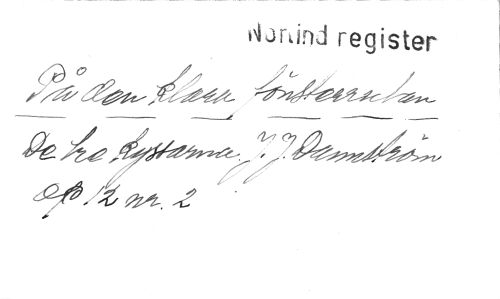 Nonlind register
På den klara fönsterrutan
De tre kyssarna. J. J. Dannström
op 12 nr. 2